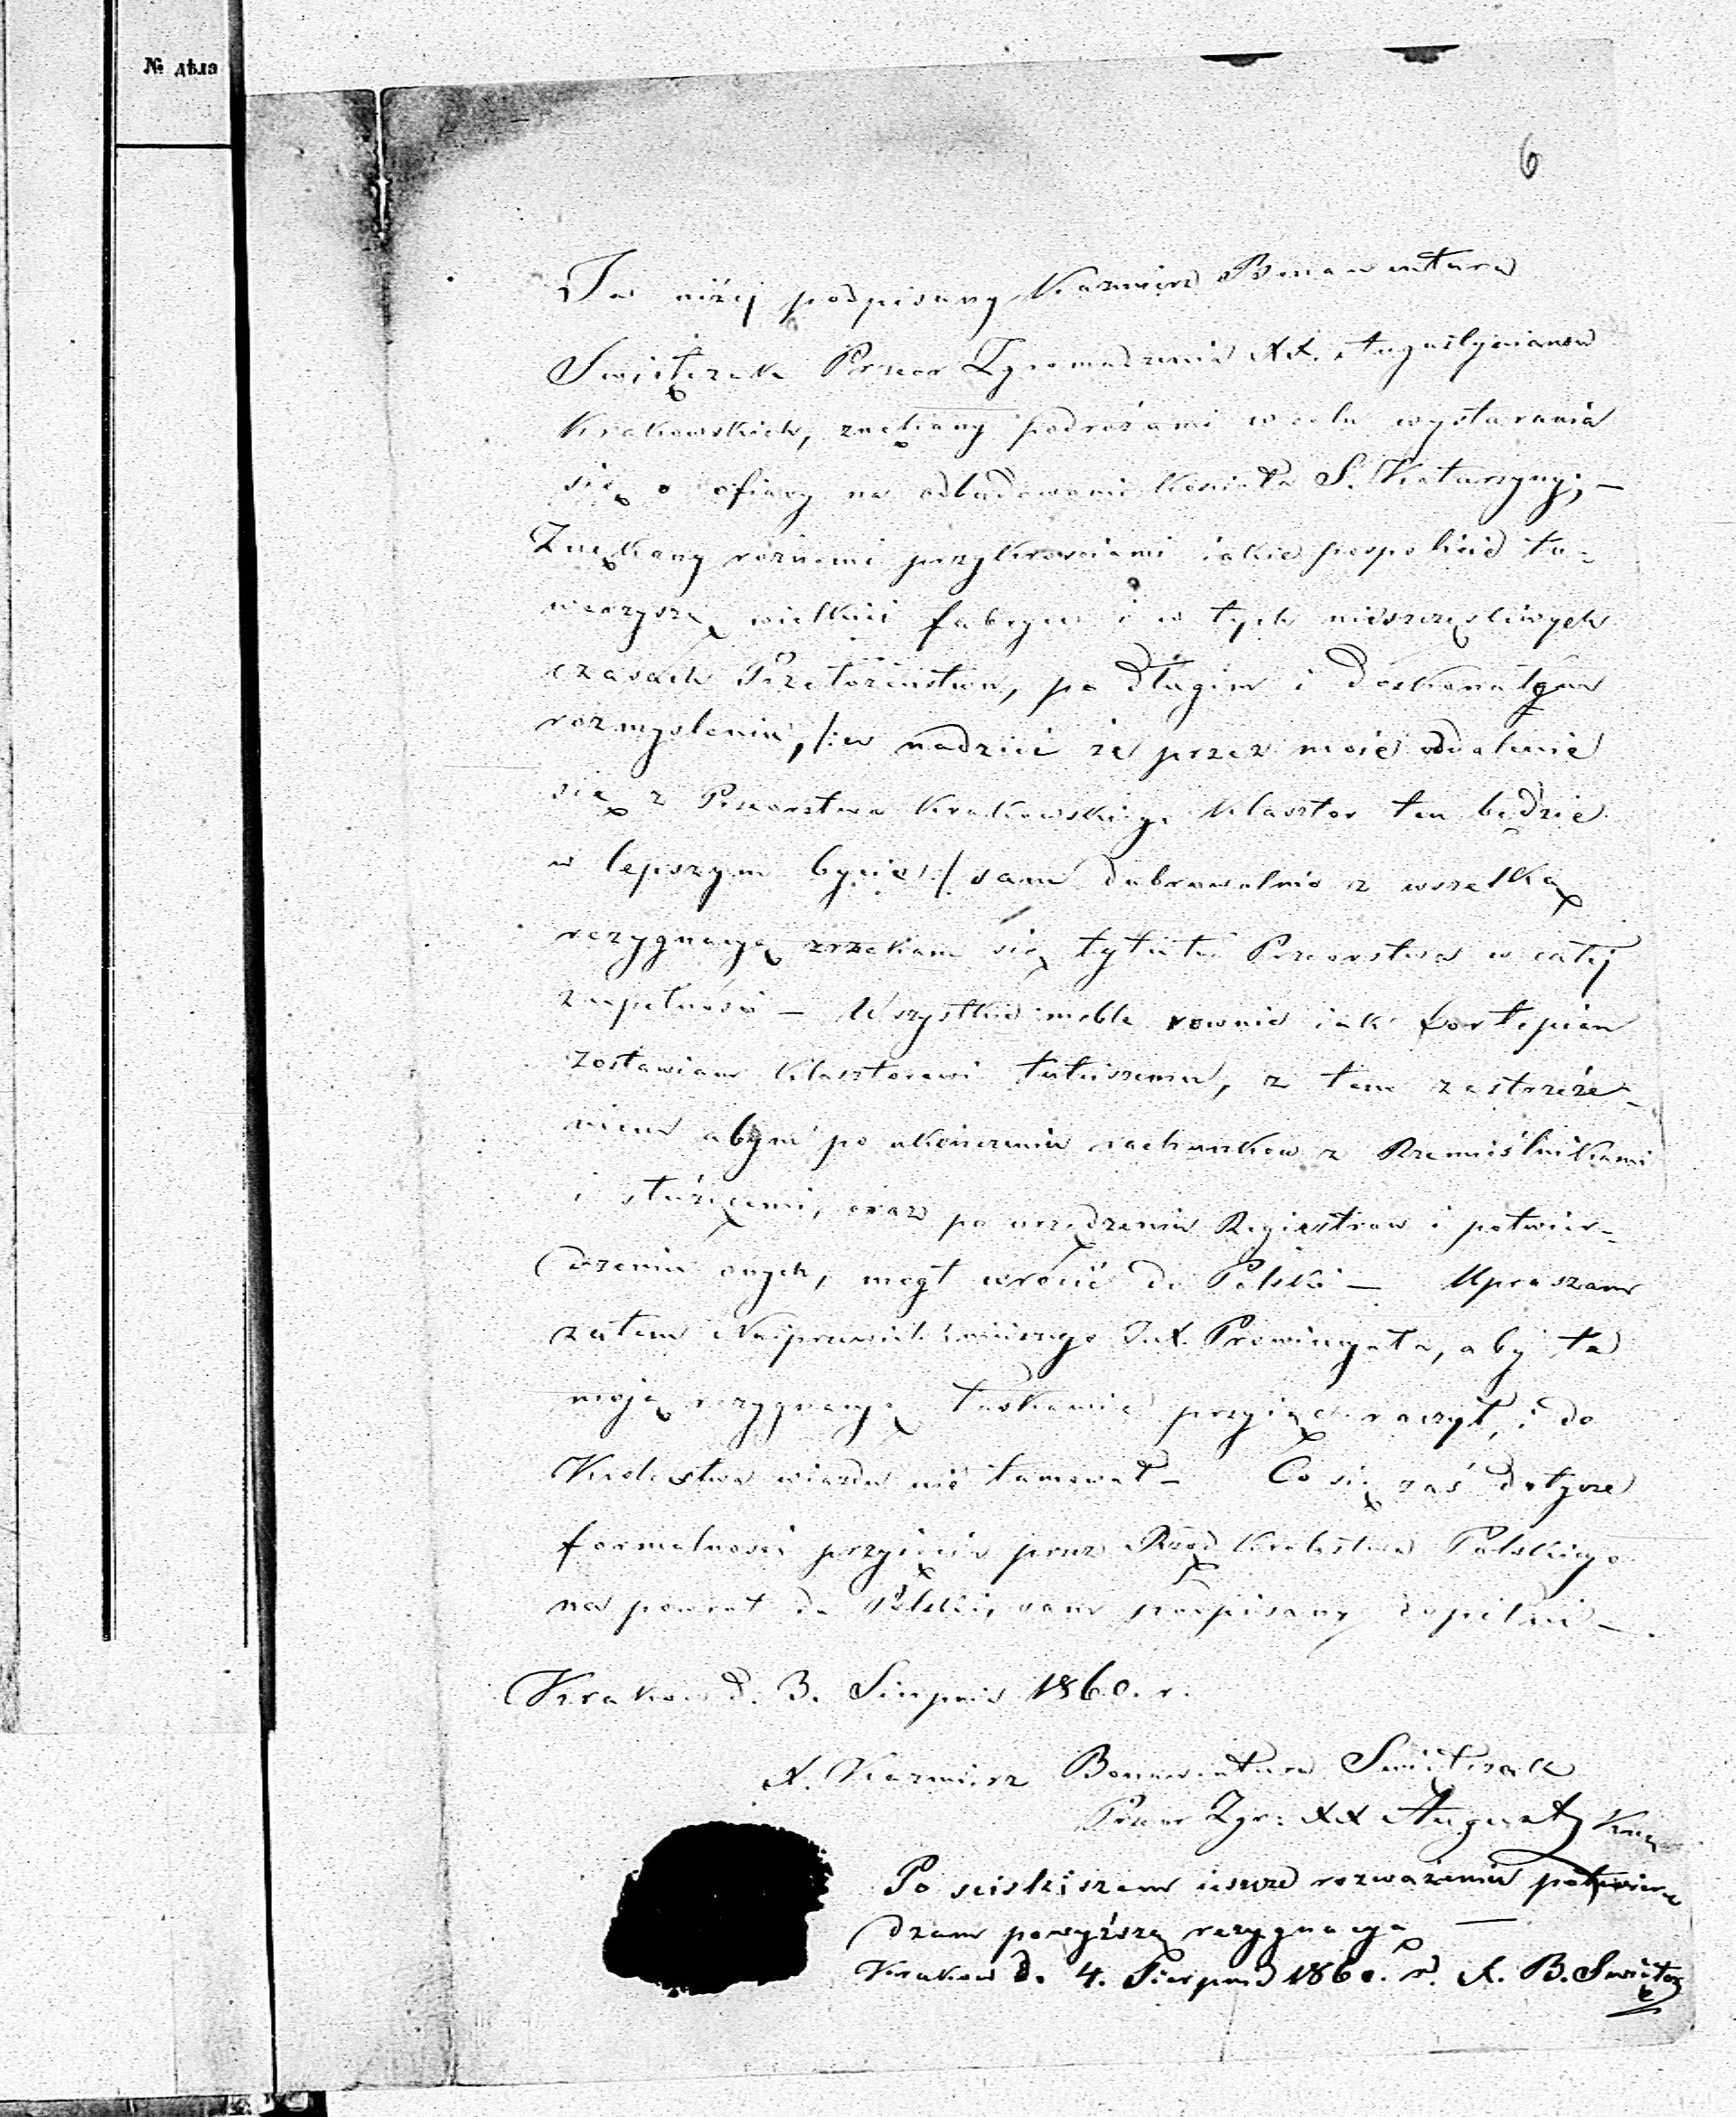 № дѣла
6
Ja niżej podpisany Kazmierz Bonawentura
Swiętczak Przeor Zgromadzenia XX. Augustyianow
Krakowskich, znękany podrożami w celu wystarania
się o ofiary na odbudowanie Kosioła S. Katarzyny; –
Znękany rożnemi przykrosciami iakie pospolicie to-
warzyszą wielkiei fabryce i w tych nieszczęsliwych
czasach Przełożeństwu, po długim i doskonałym
rozmysleniu, /: w nadziei że przez moie oddalenie
się z Przeorstwa Krakowskiego Klasztor ten będzie
w lepszym bycie :/ sam dobrowolnie z wszelką
rezygnacyą zrzekam się tytułu Przeorstwa w całej
zupełnosci – Wszystkie meble rownie iak fortepian
zostawiam Klasztorowi tuteiszemu, z tem zastrzeże-
niem abym po ukończeniu rachunkow z Rzemieślnikami
i służącemi, oraz po urządzeniu Regiestrow i potwier-
dzeniu onych, mogł wrócić do Polski – Upraszam
zatem Naiprzewielebnieiszego JX. Prowincyała, aby tę
moję rezygnacyę łaskawie przyiąć raczył, i do
Krolestwa wiazdu nie tamował – Co się zaś dotycze
formalnosci przyięcia przez Rząd Krolestwa Polskiego
na powrot do Polski, sam podpisany dopilni –
Krakow d. 3. Sierpnia 1860. r.
X. Kazmierz Bonawentura Swiętczak
Przeor Zgr: XX August Krak
Po scisleiszem ieszcze rozważeniu potwier
dzam powyższą rezygnacyą –
Krakow d. 4. Sierpnia 1860. r. X. B. Swiętcz